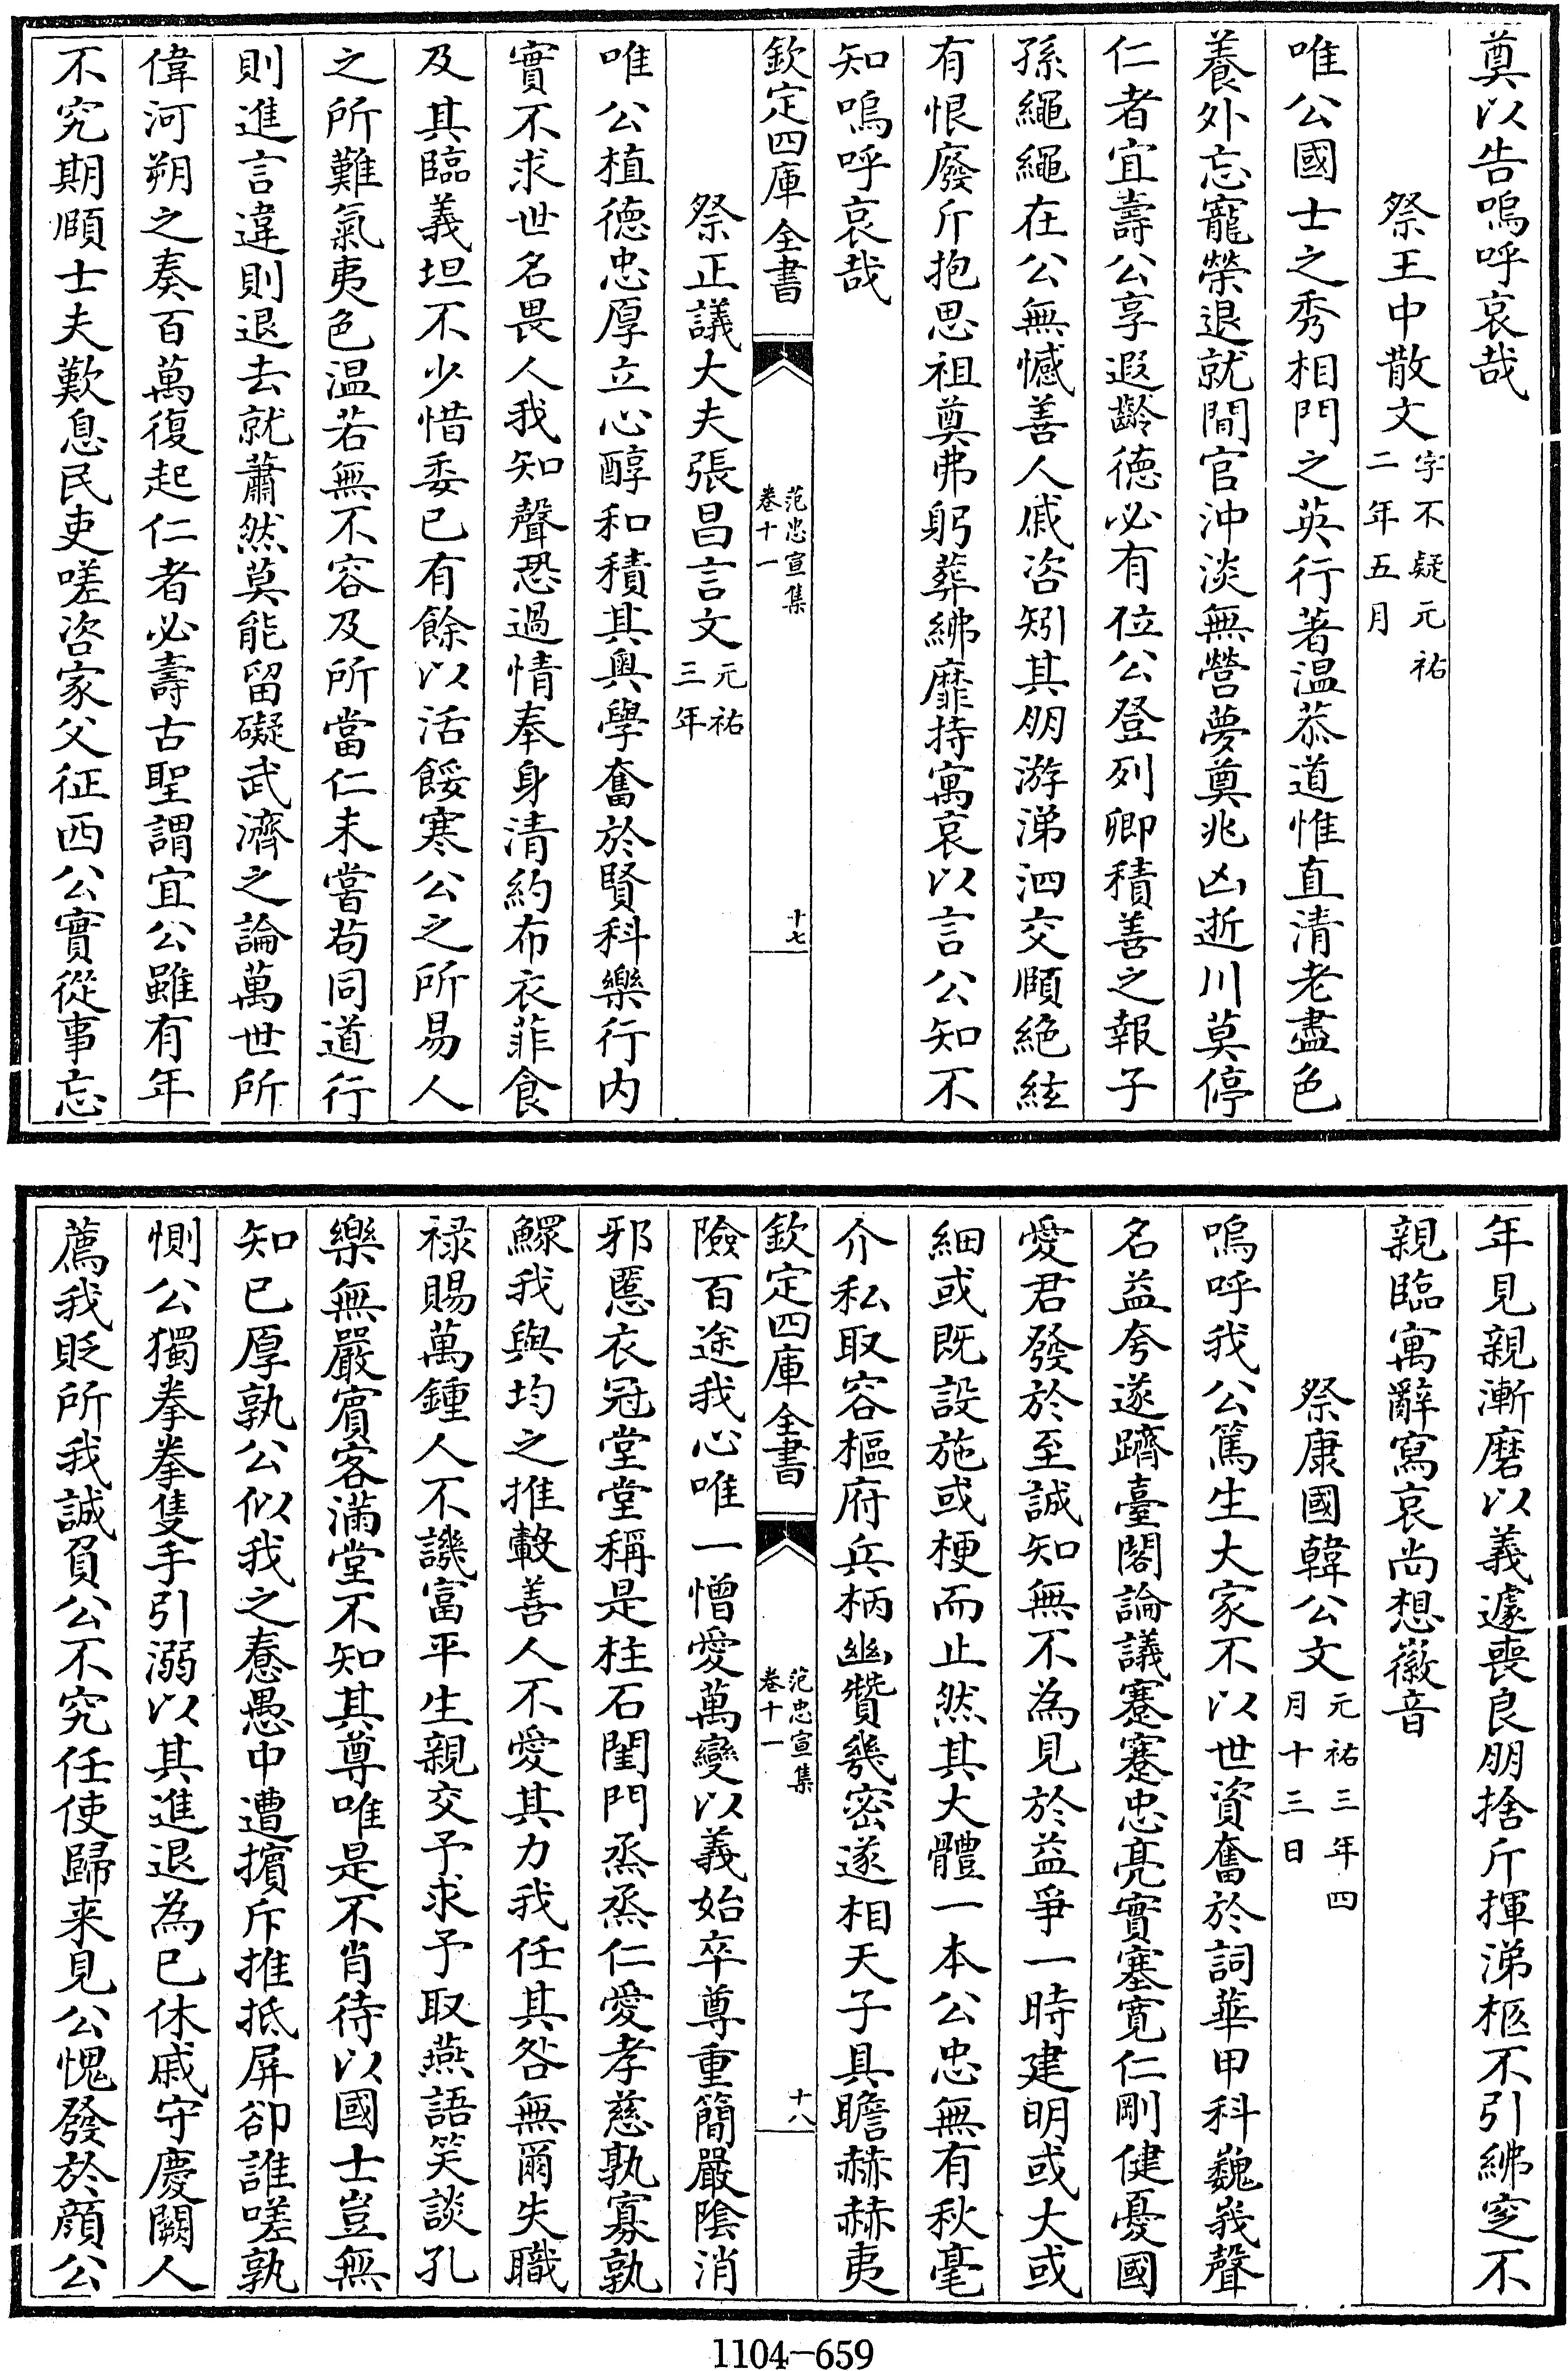 奠以告嗚呼哀哉
祭王中散文字不疑元祐二年五月
唯公國士之秀相門之英行著温恭道惟直清老盡色
養外忘寵榮退就閒官沖淡無營夢奠兆凶逝川莫停
仁者宜壽公享遐齡徳必有位公登列卿積善之報子
孫繩繩在公無憾善人戚咨矧其朋游涕泗交頤絶絃
有恨廢斤抱思祖奠弗躬葬紼靡持寓哀以言公知不
知嗚呼哀哉
欽定四庫全書
范忠宣集
卷十一
十七
祭正議大夫張昌言文元祐三年
唯公植徳忠厚立心醇和積其奥學奮於賢科樂行内
實不求世名畏人我知聲恐過情奉身清約布衣菲食
及其臨義坦不少惜委已有餘以活餒寒公之所易人
之所難氣夷色温若無不容及所當仁未嘗茍同道行
則進言違則退去就蕭然莫能留礙武濟之論萬世所
偉河朔之奏百萬復起仁者必壽古聖謂宜公雖有年
不究期頤士夫歎息民吏嗟咨家父征西公實從事忘
年見親漸磨以義遽喪良朋捨斤揮涕柩不引紼窆不
親臨寓辭寫哀尚想徽音
祭康國韓公文元祐三年四月十三日
嗚呼我公篤生大家不以世資奮於詞華甲科巍峩聲
名益夸遂躋臺閣論議蹇蹇忠亮實塞寛仁剛健憂國
愛君發於至誠知無不為見於益爭一時建明或大或
細或既設施或梗而止然其大體一本公忠無有秋毫
介私取容樞府兵柄幽贊幾密遂相天子具瞻赫赫夷
欽定四庫全書
范忠宣集
卷十一
十八
險百途我心唯一憎愛萬變以義始卒尊重簡嚴陰消
邪慝衣冠堂堂稱是柱石閨門烝烝仁愛孝慈孰寡孰
鰥我與均之推轂善人不愛其力我任其咎無爾失職
禄賜萬鍾人不譏富平生親交予求予取燕語笑談孔
樂無嚴賓客滿堂不知其尊唯是不肖待以國士豈無
知已厚孰公似我之惷愚中遭擯斥推抵屏卻誰嗟孰
惻公獨拳拳隻手引溺以其進退為已休戚守慶闕人
薦我貶所我誠負公不究任使歸来見公愧發於顔公
1104-659